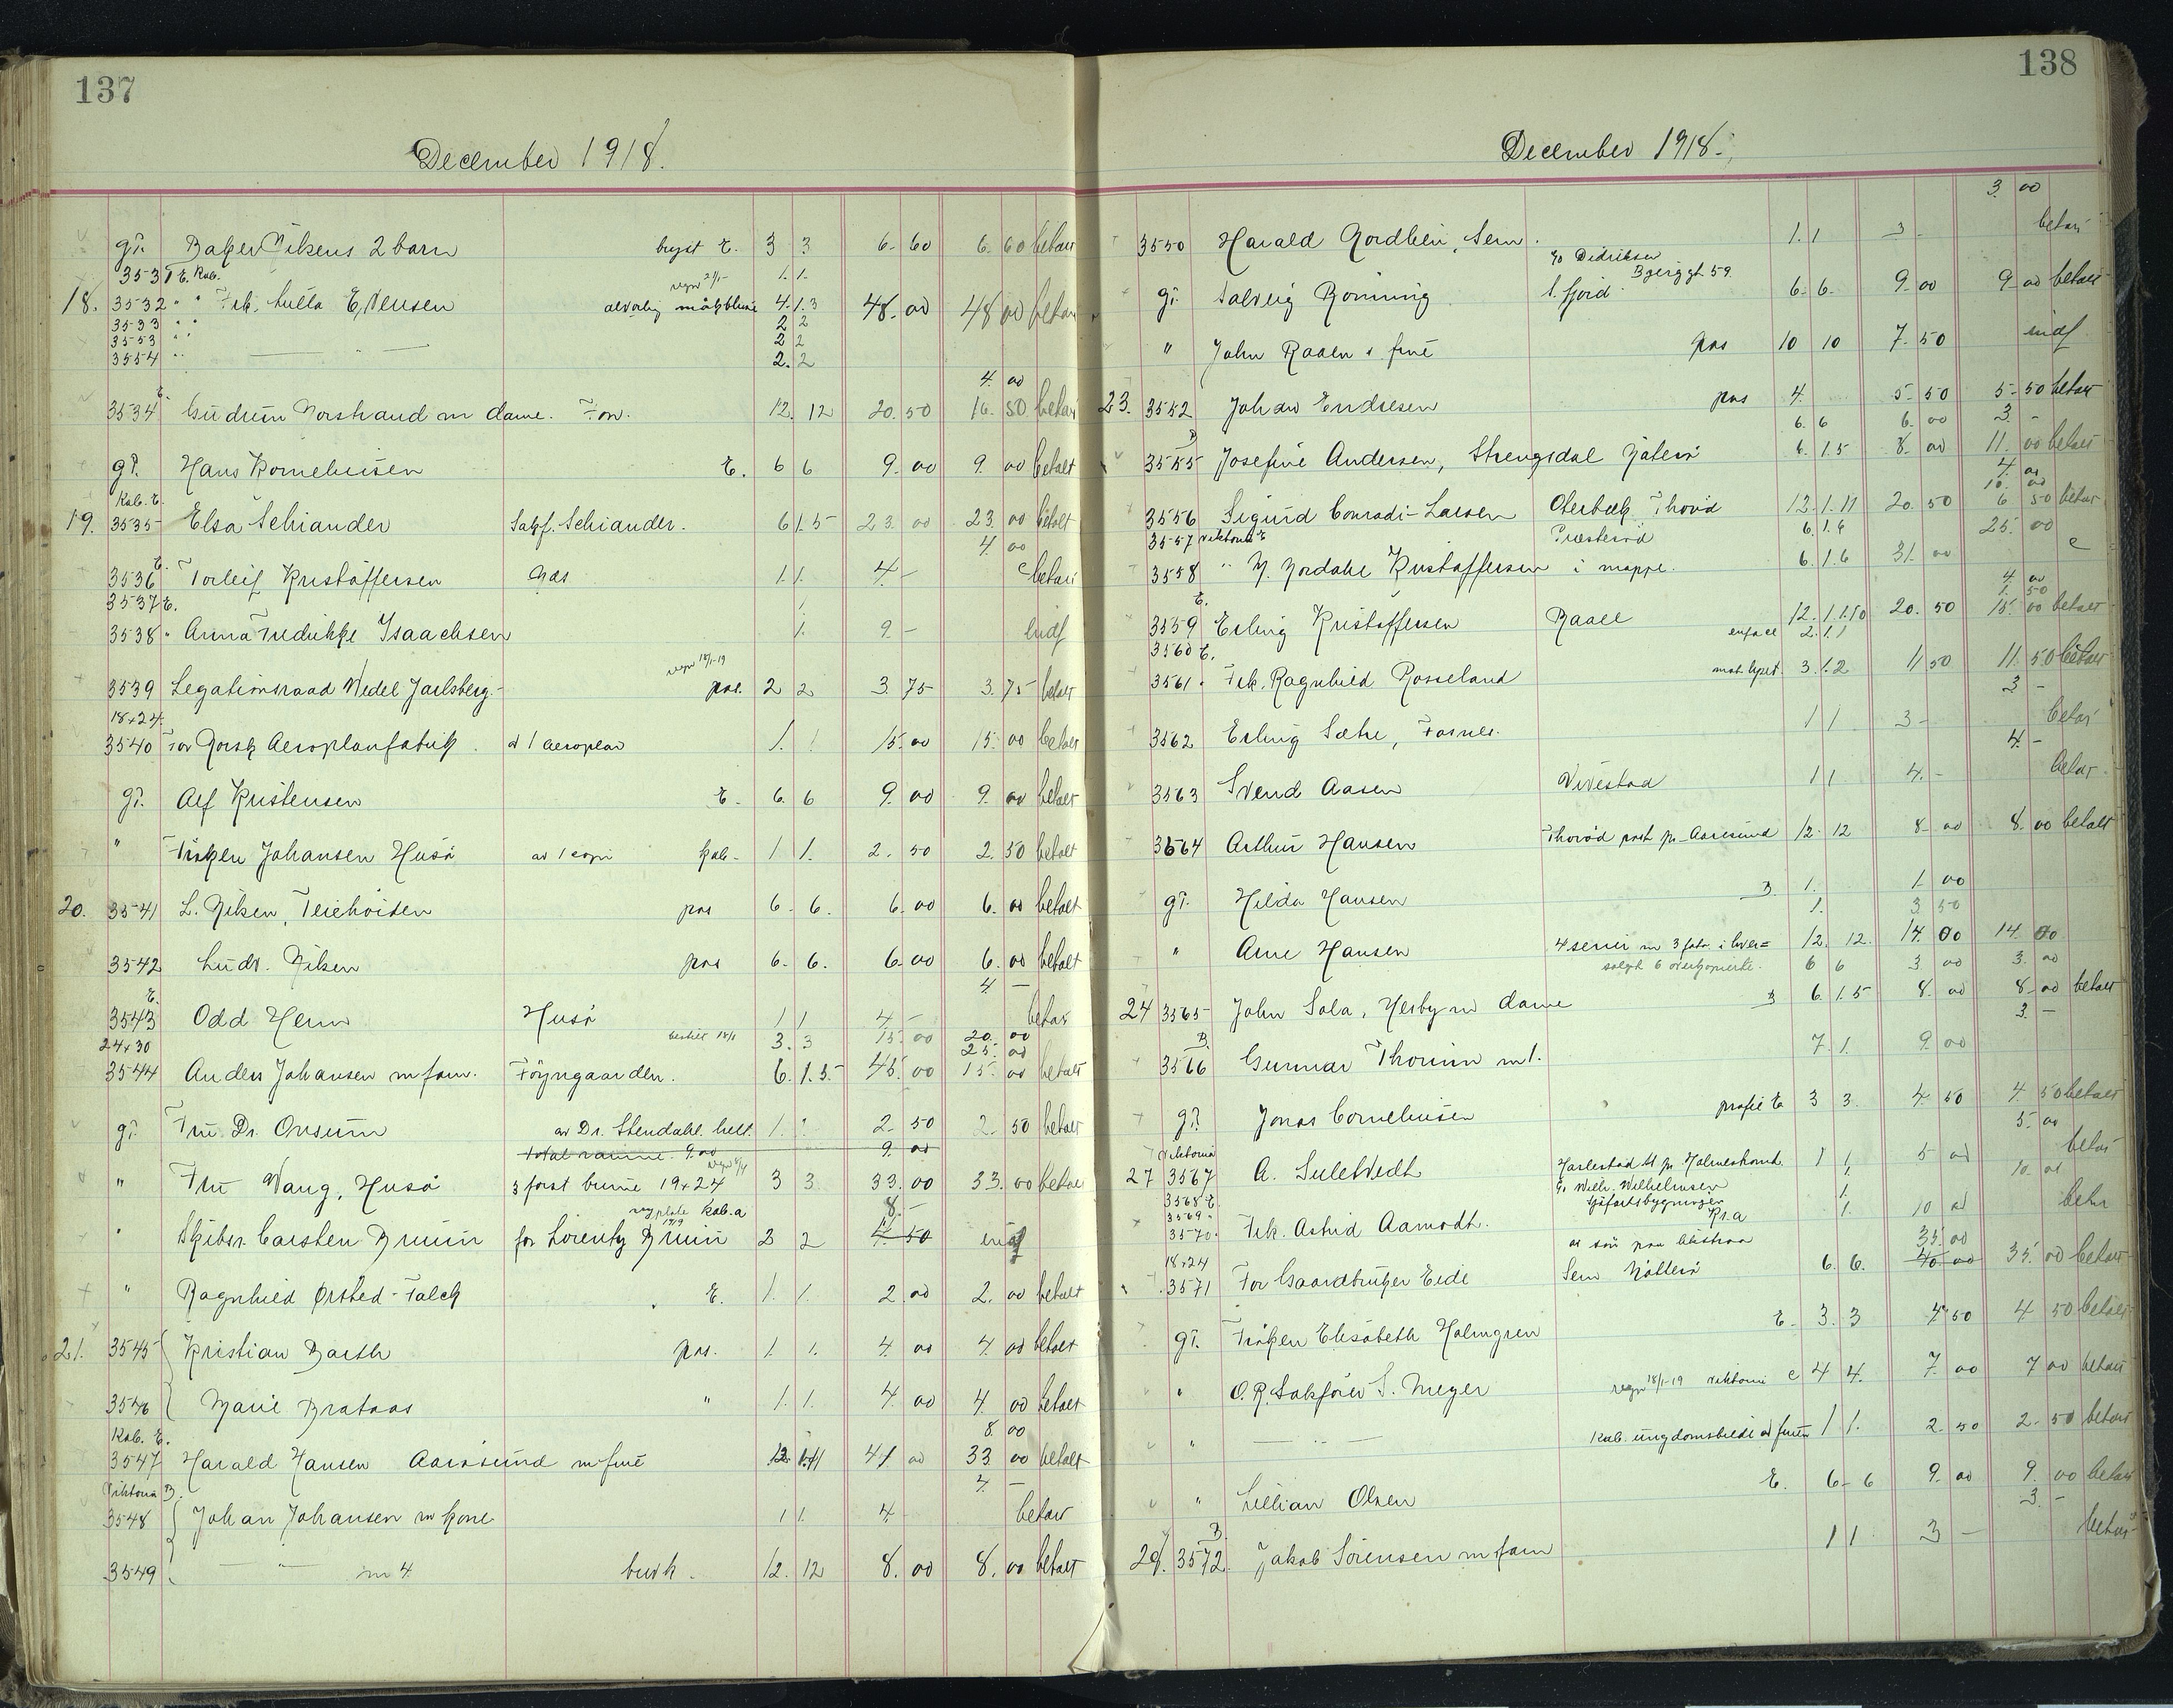 137
December 1918.
gt. Baker Nilsens 2 barn bryst E. 3 3 6. 60 6. 60 betalt
3531 E. Kab. 1. 1.
18. 3532 " " Frk. Lulla E. Jensen 4. 1. 3 48. 00 48 00 betalt
3533 " " 2 2
3553 " " 2 2
3554 " — " — 2. 2
4. 00
3534 E. Gudrun Norstrand m dame. Tøn. 12. 12 20. 50 16. 50 betalt
gt. Hans Korneliusen E. 6 6 9. 00 9. 00 betalt
Kab. E.
19. 3535 Elsa Schiander Sakf. Schiander. 6 1. 5 23. 00 23. 00 betalt
4. 00
3536 E. Torleif Kristoffersen Nøs 1. 1. 4. – betalt
3537 E. 1.
3538 " Anna Fredrikke Isaachsen 1. 9 – indf
regn 18/1-19
3539 Legationsraad Wedel Jarlsberg. pas. 2 2 3. 75 3. 75 betalt
18x24.
3540 For Norsk Aeroplanfabrik a 1 aeroplan 1. 1 15. 00 15. 00 betalt
gt. Alf Kristensen E. 6. 6 9. 00 9. 00 betalt
" Frøken Johansen Husø av 1 copi kab. 1 1. 2. 50 2. 50 betalt
20. 3541 L. Nilsen, Teiehøiden pas 6. 6. 6. 00 6. 00 betalt
3542 Ludv. Nilsen pas 6. 6. 6. 00 6. 00 betalt
E. 4. –
3543 Odd Henn Husø 1 1 4. – betalt
24x30 bestilt 18/1 3. 3 15. 00 20. 00
25. 00
3544 Anders Johansen m fam. Föyngaarden. 6. 1. 5. 45. 00 15. 00 betalt
gt. Fru Dr. Onsum av Dr. Stendahl. hell. 1. 1. 2. 50 2. 50 betalt
oval ramme. 9.00 9. 00
" Fru Wang, Husø 3 først brune 19x24 3 3 33. 00 33. 00 betalt
ny plate Kab. a 8. –
" Skibsr. Carsten Bruun for Lorentz Bruun 2 2 4. 50 indf
" Ragnhild Ørsted-Falck E. 1. 1. 2. 00 2. 00 betalt
21. 3545 { Kristian Barth pas. 1. 1. 4. 00 4. 00 betalt
3546 { Marie Brataas " 1. 1. 4. 00 4. 00 betalt
Kab. E. 8. 00
3547 Harald Hansen Aarøsund m frue 12. 1. 11 41 00 33. 00 betalt
Viktoria B. 4. –
3548 { Johan Johansen m kone 1 1. 4. betalt
3549 { — " — m 4. brvk. 12. 12 8. 00 8. 00 betalt
138
December 1918.
3. 00
3550 Harald Nordbein, Sem. 1. 1 3 – betalt
c/o Didriksen
Bjerggt. 59.
gt. Solveig Rønning S. fjord. 6. 6. 9. 00 9 00 betalt
" John Raaen s. frue pas 10 10 7. 50 indf.
23. 3552 Johan Endresen pas 4. 5. 50 5. 50 betalt
6. 6 6. 00 3. –
B
3555 Josefine Andersen, Strengsdal Nøterø 6. 1. 5 8. 00 11. 00 betalt
4. 00
10. 00
3556 Sigurd Conradi-Larsen Oterbæk Thorød 12. 1. 11 20. 50 6 50 betalt
3557 Viktoria E Præsterød 6. 1. 6 25. 00
3558 " N. Nordahl Kristoffersen i mappe. 6. 1. 6 31. 00
4. 00
E. 1. 50
3559 Erling Kristoffersen Raael 12. 1. 1. 10 20. 50 15. 00 betalt
enface 2. 1. 1
3560 E.
3561 " Frk. Ragnhild Rosseland mat. kput. 3. 1. 2 11 50 11. 50 betalt
3 –
3562 Erling Sætre, Fosnes. 1 1 3 – betalt
4. –
3563 Svend Aasen Vivestad 1 1 4. – betalt
3564 Arthur Hansen Thorød post pr. Aarøsund 12. 12 8. 00 8. 00 betalt
gt. Hilda Hansen B. 1. 1 00
1. 3 50
" Arne Hansen 4 serier m 3 foto. i hver = 12. 12. 14. 00 14. 00
solgt 6 6 6 3 00 3. 00
24 3565 John Sola, Hesby m dame B 6. 1. 5 8. 00 8. 00 betalt
3. –
B.
3566 Gunnar Thorum m 1. 7. 1. 9. 00
gt. Jonas Corneliusen profil E 3 3. 4. 50 4. 50 betalt
5. 00
Viktoria
27 3567 A. Suletvedt Harlestad st. pr. Holmestrand 1 1 5 00 betalt
3568 E. c/o Wilh. Wilhelmsen 1. 10. 00
3569 " Sjøfartsbygningen 1.
3570 " Frk. Astrid Aamodt. Kr.a 1. 10 00 betalt
35. 00
18x24
3571 For Gaardbruker Eide Sem Nøtterø 6. 6. 40. 00 35. 00 betalt
gt. Frøken Elisabeth Holmgren E. 3. 3 4. 50 4 50 betalt
" O. R. Sakfører S. Meyer regn 18/1-19 Viktoria E 4 4. 7. 00 7 00 betalt
" — " — Kab. ungdomsbilde av fruen 1 1. 2. 50 2. 50 betalt
" Lillian Olsen E. 6. 6 9. 00 9. 00 betalt
3. –
B.
28. 3572. Jakob Sørensen m fam 1 1 3 – betalt